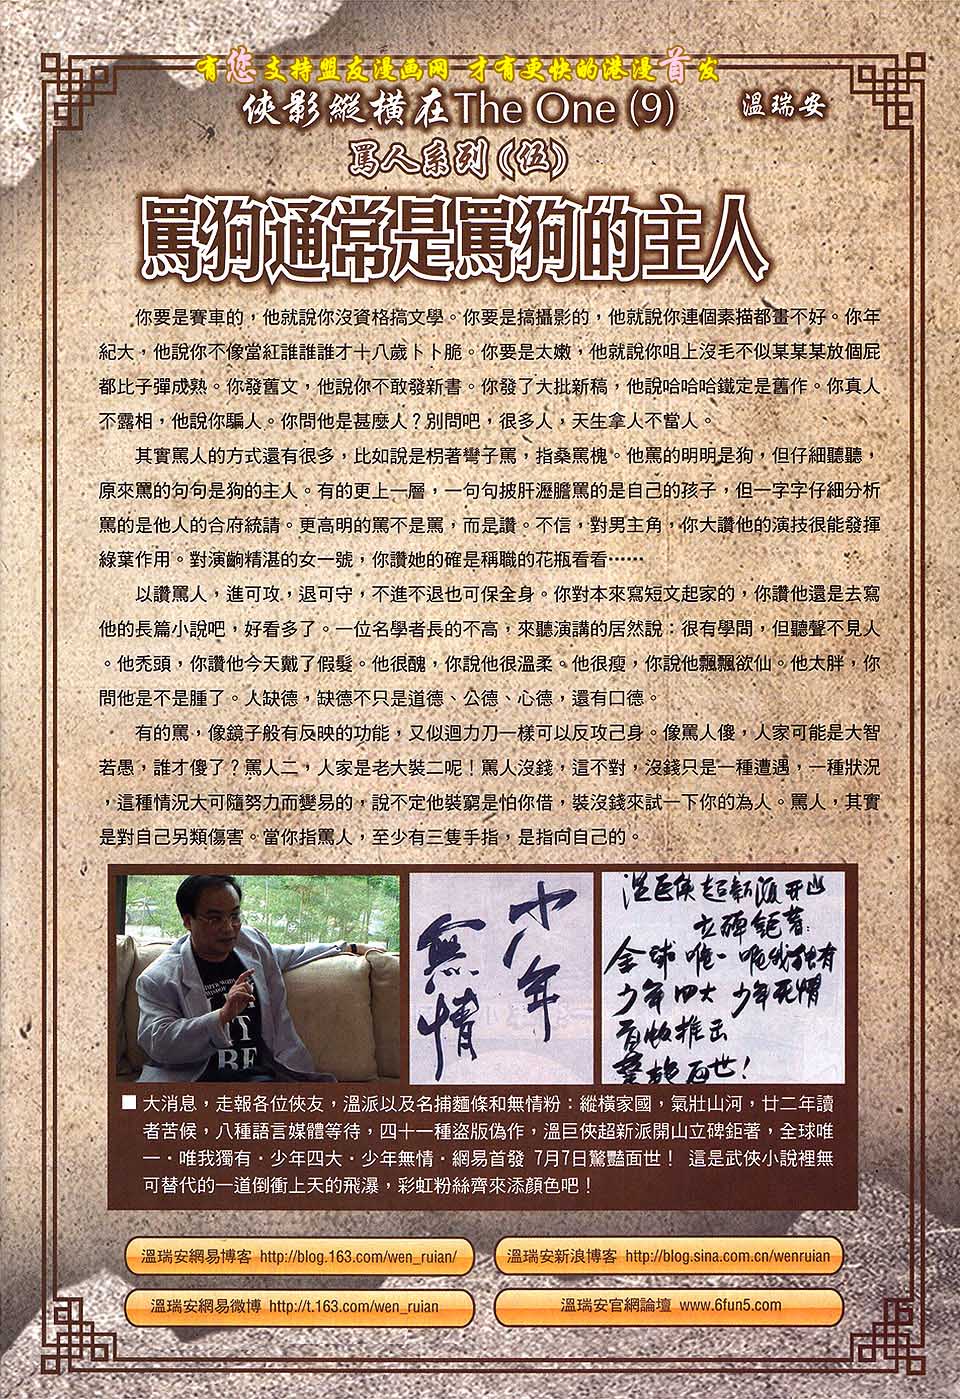 有您支持盟友漫画网 才有更快的港漫首发
俠影縱橫在The One (9) 溫瑞安
罵人系列(伍)
罵狗通常是罵狗的主人
你要是賽車的，他就說你沒資格搞文學。你要是搞攝影的，他就說你連個素描都畫不好。你年
紀大，他說你不像當紅誰誰誰才十八歲卜卜脆。你要是太嫩，他就說你咀上沒毛不似某某某放個屁
都比子彈成熟。你發舊文，他說你不敢發新書。你發了大批新稿，他說哈哈哈鐵定是舊作。你真人
不露相，他說你騙人。你問他是甚麼人？別問吧，很多人，天生拿人不當人。
其實罵人的方式還有很多，比如說是柺著彎子罵，指桑罵槐。他罵的明明是狗，但仔細聽聽，
原來罵的句句是狗的主人。有的更上一層，一句句披肝瀝膽罵的是自己的孩子，但一字字仔細分析
罵的是他人的合府統請。更高明的罵不是罵，而是讚。不信，對男主角，你大讚他的演技很能發揮
綠葉作用。對演齣精湛的女一號，你讚她的確是稱職的花瓶看看……
以讚罵人，進可攻，退可守，不進不退也可保全身。你對本來寫短文起家的，你讚他還是去寫
他的長篇小說吧，好看多了。一位名學者長的不高，來聽演講的居然說：很有學問，但聽聲不見人
。他禿頭，你讚他今天戴了假髮。他很醜，你說他很溫柔。他很瘦，你說他飄飄欲仙。他太胖，你
問他是不是腫了。人缺德，缺德不只是道德、公德、心德，還有口德。
有的罵，像鏡子般有反映的功能，又似迴力刀一樣可以反攻己身。像罵人傻，人家可能是大智
若愚，誰才傻了？罵人二，人家是老大裝二呢！罵人沒錢，這不對，沒錢只是一種遭遇，一種狀況
，這種情況大可隨努力而變易的，說不定他裝窮是怕你借，裝沒錢來試一下你的為人。罵人，其實
是對自己另類傷害。當你指罵人，至少有三隻手指，是指向自己的。
少年
無情
溫巨俠超新派開山
立碑鉅著：
全球唯一 唯我獨有
少年四大 少年無情
首次推出
驚艷面世！
■ 大消息，走報各位俠友，溫派以及名捕麵條和無情粉：縱橫家國，氣壯山河，廿二年讀
者苦候，八種語言媒體等待，四十一種盜版偽作，溫巨俠超新派開山立碑鉅著，全球唯
一．唯我獨有．少年四大．少年無情．網易首發 7月7日驚豔面世！ 這是武俠小說裡無
可替代的一道倒衝上天的飛瀑，彩虹粉絲齊來添顏色吧！
溫瑞安網易博客 http://blog.163.com/wen_ruian/
溫瑞安新浪博客 http://blog.sina.com.cn/wenruian
溫瑞安網易微博 http://t.163.com/wen_ruian
溫瑞安官網論壇 www.6fun5.com